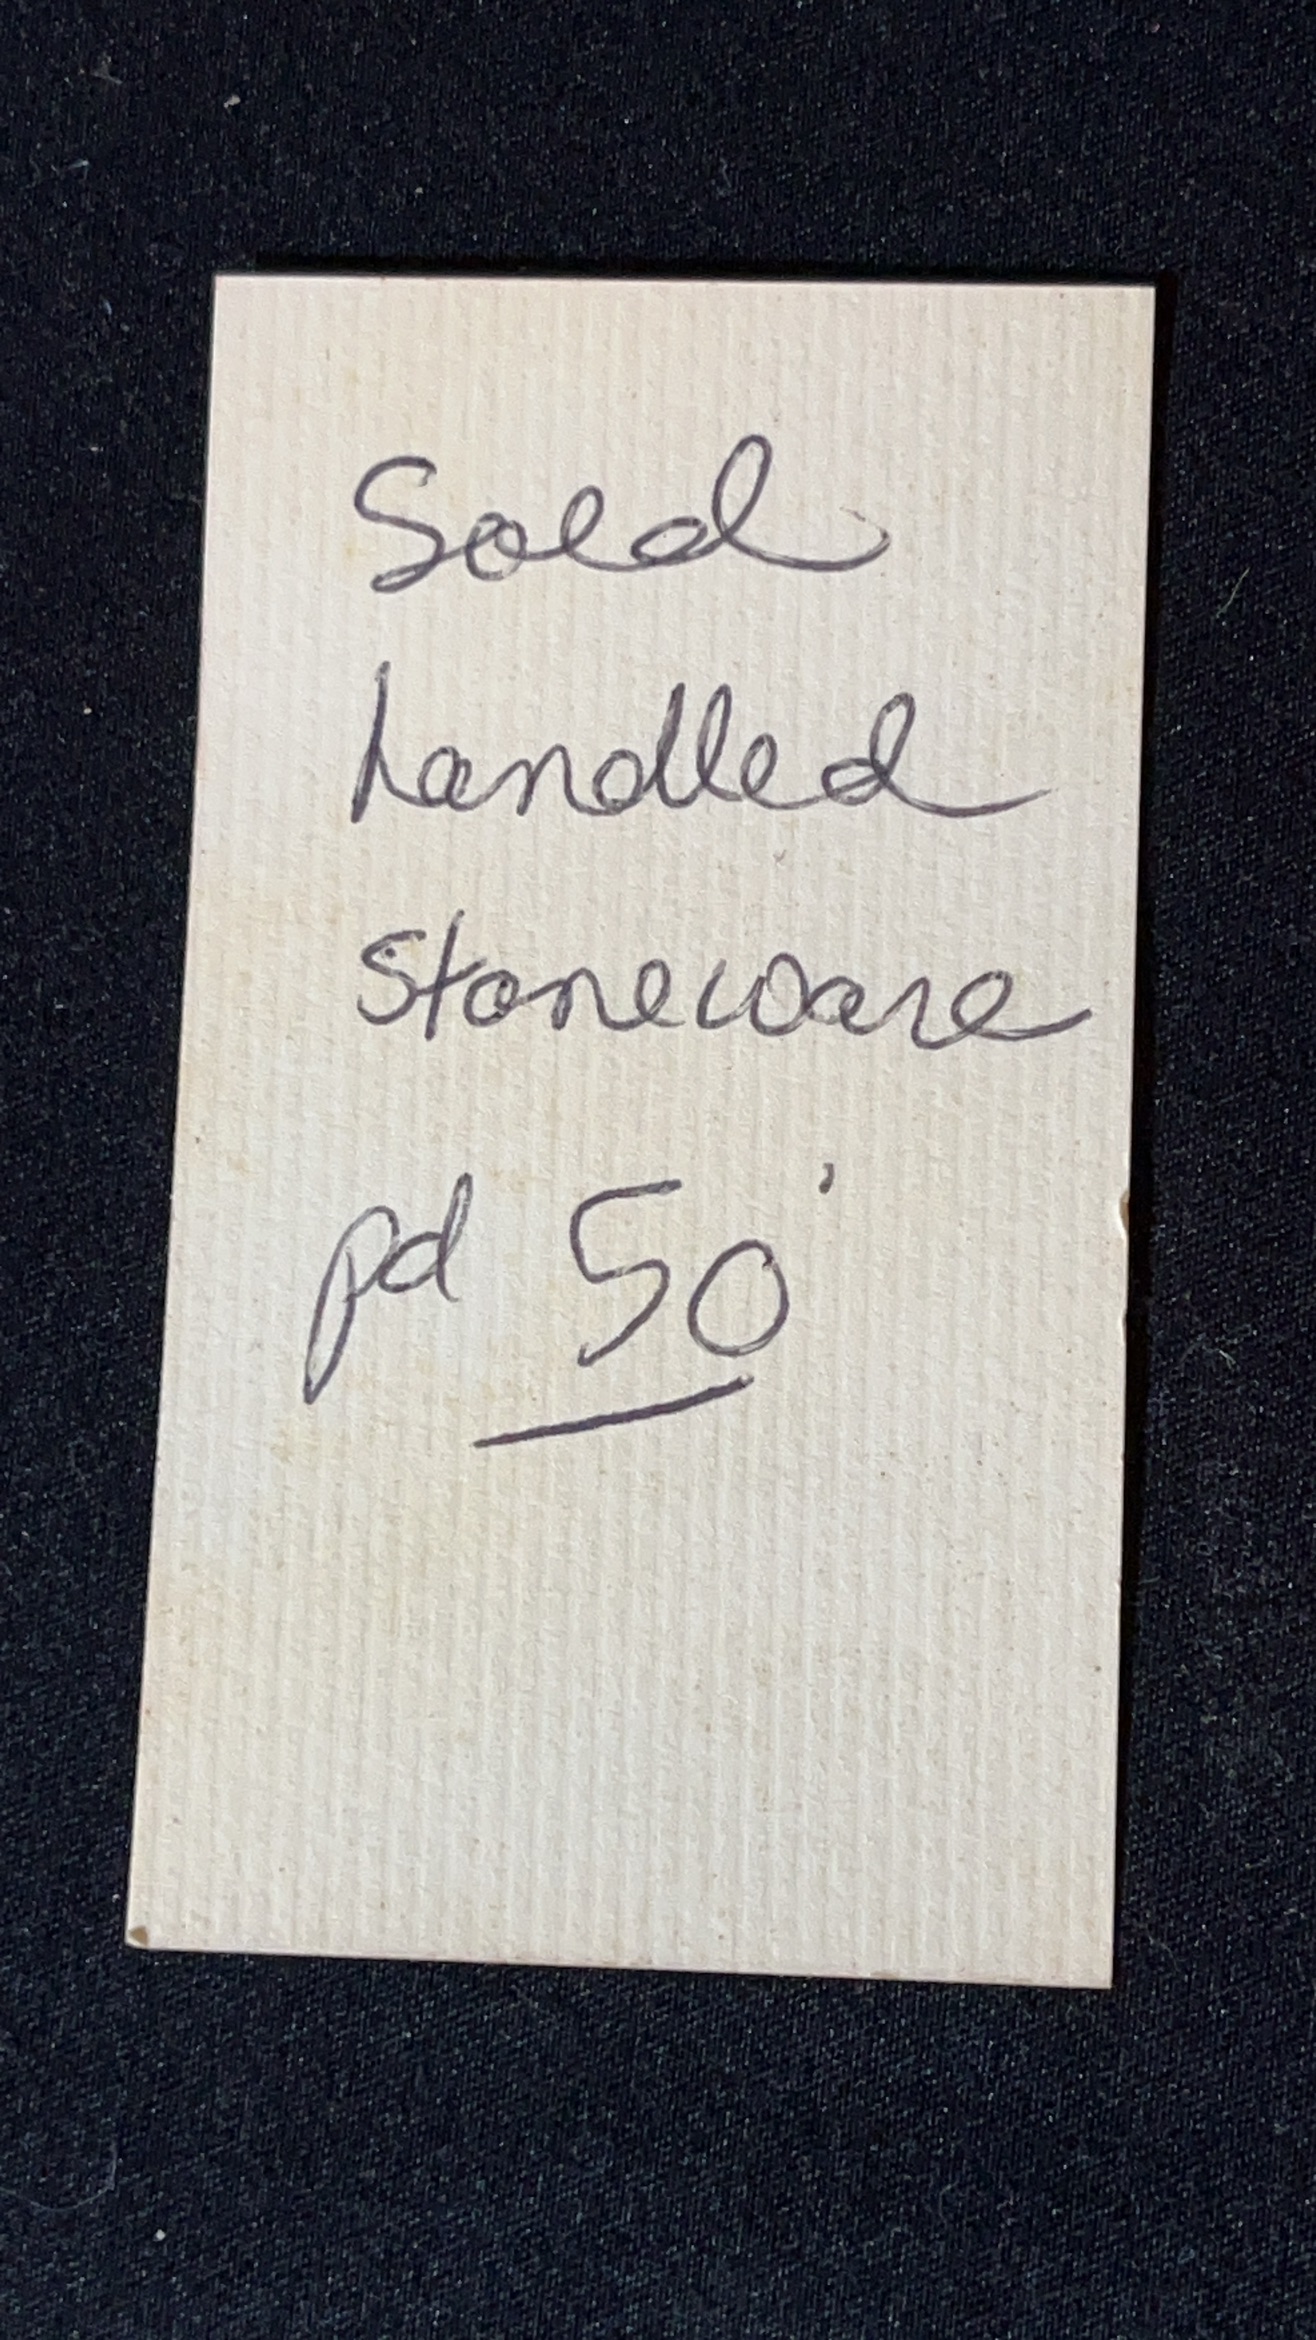 Sold
handled
stoneware
pd 50'